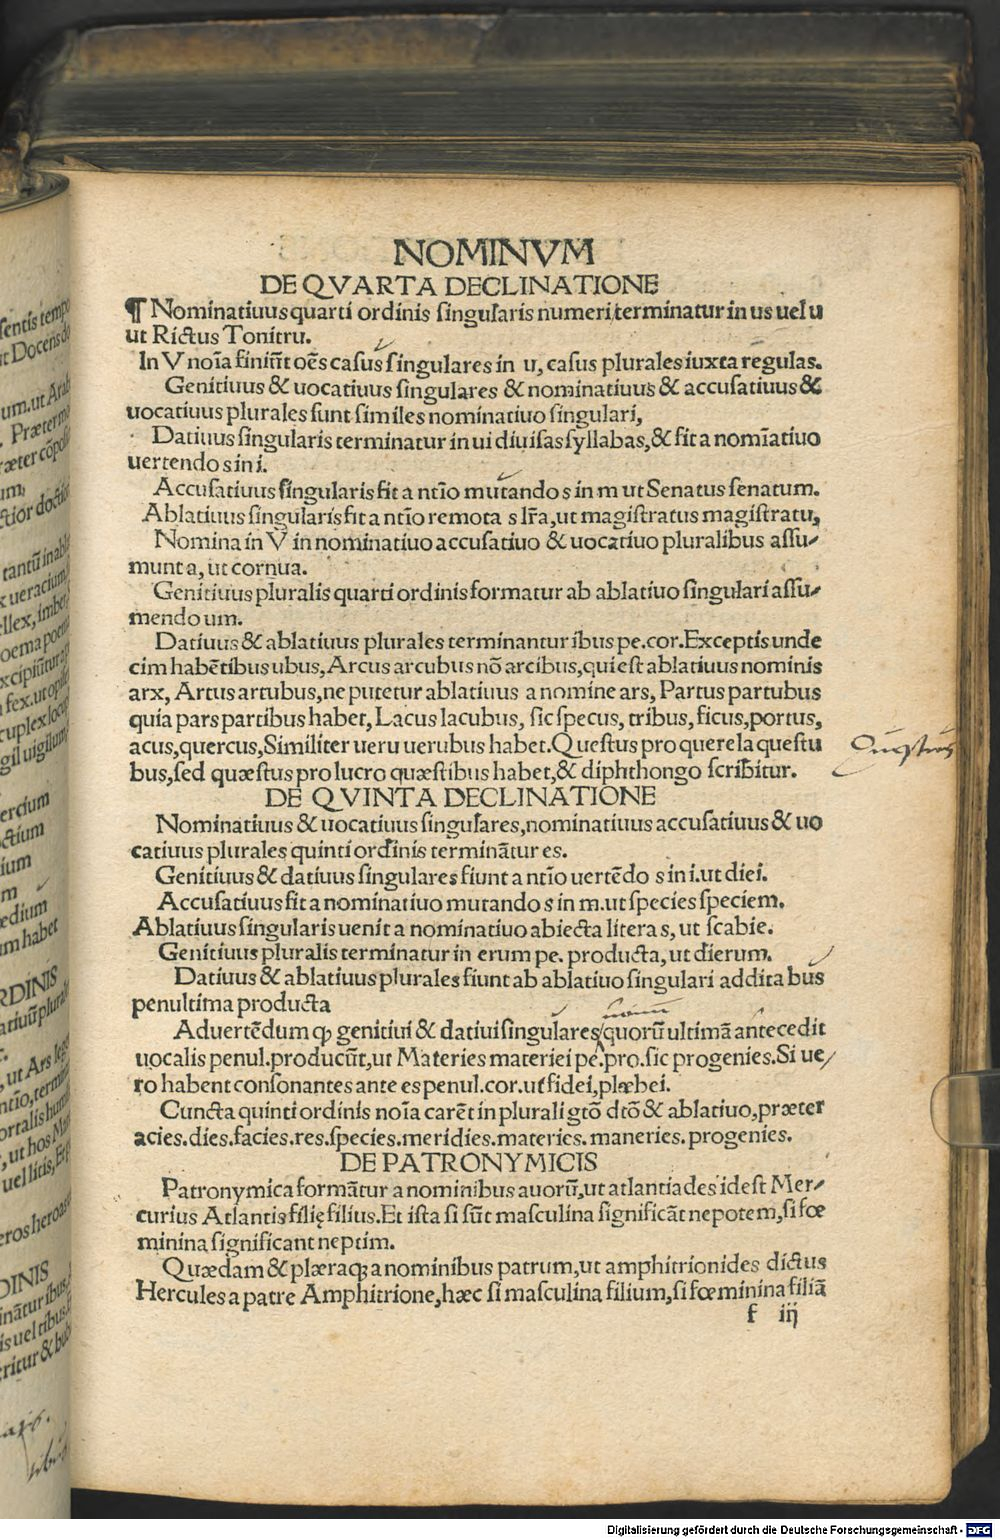 NOMINVM
DE QVARTA DECLINATIONE
¶ Nominatiuus quarti ordinis ſingularis numeri terminatur in us uel u
ut Rictus Tonitru.
In V noīa finiūt oēs caſus ſingulares in u, caſus plurales iuxta regulas.
Genitiuus & uocatiuus ſingulares & nominatiuus & accuſatiuus &
uocatiuus plurales ſunt ſimiles nominatiuo ſingulari,
Datiuus ſingularis terminatur in ui diuiſas ſyllabas, & fit a nomīatiuo
uertendo s in i.
Accuſatiuus ſingularis fit a ntīo mutando s in m ut Senatus ſenatum.
Ablatiuus ſingularis fit a ntīo remota s lr̄a, ut magiſtratus magiſtratu,
Nomina in V in nominatiuo accuſatiuo & uocatiuo pluralibus aſſu-
munt a, ut cornua.
Genitiuus pluralis quarti ordinis formatur ab ablatiuo ſingulari aſſu-
mendo um.
Datiuus & ablatiuus plurales terminantur ibus pe.cor.Exceptis unde
cim habētibus ubus, Arcus arcubus nō arcibus, qui eſt ablatiuus nominis
arx, Artus artubus, ne putetur ablatiuus a nomine ars, Partus partubus
quia pars partibus habet, Lacus lacubus, ſic ſpecus, tribus, ficus, portus,
acus, quercus, Similiter ueru uerubus habet. Queſtus pro querela queſtu
bus, ſed quæſtus pro lucro quæſtibus habet, & diphthongo ſcribitur.
Quęstus
DE QVINTA DECLINATIONE
Nominatiuus & uocatiuus ſingulares, nominatiuus accuſatiuus & uo
catiuus plurales quinti ordinis terminātur es.
Genitiuus & datiuus ſingulares fiunt a ntīo uertēdo s in i. ut diei.
Accuſatiuus fit a nominatiuo mutando s in m. ut ſpecies ſpeciem.
Ablatiuus ſingularis uenit a nominatiuo abiecta litera s, ut ſcabie.
Genitiuus pluralis terminatur in erum pe. producta, ut dierum.
Datiuus & ablatiuus plurales fiunt ab ablatiuo ſingulari addita bus
penultima producta
Aduertēdum ꝙ genitiui & datiui ſingulares quorū ultimā antecedit
uocalis penul.producūt, ut Materies materiei pe.pro. ſic progenies. Si ue/
ro habent conſonantes ante es penul.cor. ut fidei, plæbei.
Cuncta quinti ordinis noīa carēt in plurali gtō dtō & ablatiuo, præter
acies. dies. facies. res. ſpecies. meridies. materies. maneries. progenies.
DE PATRONYMICIS
Patronymica formātur a nominibus auorū, ut atlantiades id eſt Mer-
curius Atlantis filię filius. Et iſta ſi ſūt maſculina ſignificāt nepotem, ſi fœ
minina ſignificant neptim.
Quædam & plæraqꝫ a nominibus patrum, ut amphitrionides dictus
Hercules a patre Amphitrione, hæc ſi maſculina filium, ſi fœminina filiā
f iij
Digitalisierung gefördert durch die Deutsche Forschungsgemeinschaft - DFG